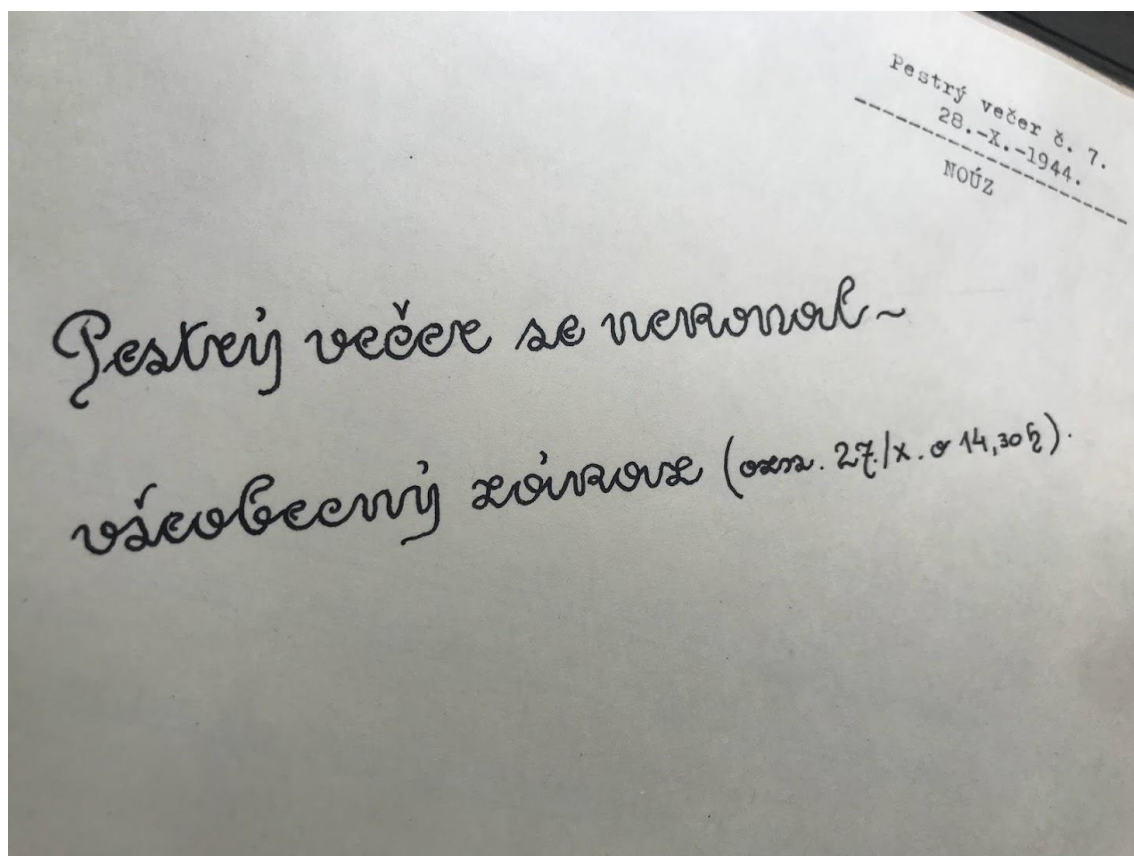 Pestrý večer č. 7.
28.-X.-1944.
NOÚZ
Pestrý večer se nekonal ~
všeobecný zákaz (ozn. 27./X. o 14,30 h).